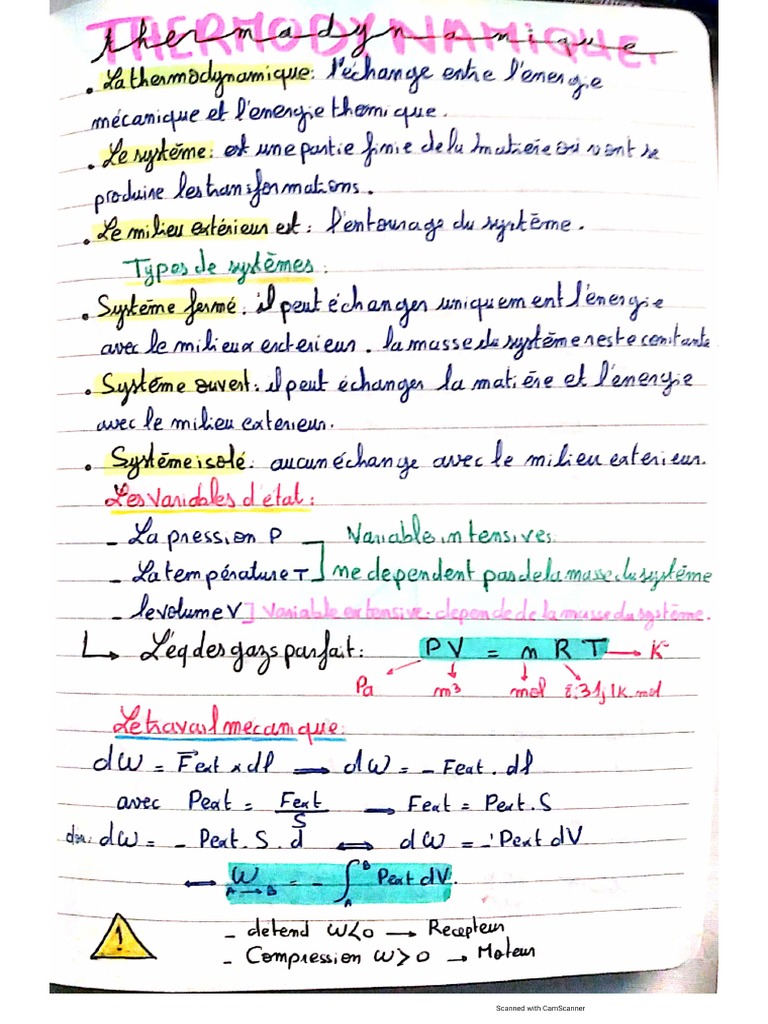 THERMODYNAMIQUE.
thermodynamique
• La thermodynamique : l'échange entre l'énergie
mécanique et l'énergie thermique.
• Le système : est une partie finie de la matière où vont se
produire les transformations.
• Le milieu extérieur est : l'entourage du système.
Types de systèmes :
• Système fermé : il peut échanger uniquement l'énergie
avec le milieux exterieur. la masse du système reste constante
• Système ouvert : il peut échanger la matière et l'énergie
avec le milieu exterieur.
• Système isolé : aucun échange avec le milieu exterieur.
Les variables d'état :
- La pression P Variable intensives
- La température T ne dependent pas de la masse du système
- le volume V ] Variable extensive : depende de la masse du système.
↳ L'éq des gazs parfait : PV = n R T → K
Pa m³ mol 8,31 J/K.mol
Le travail mecanique :
dW = F⃗ext × dl → dW = - Fext . dl
avec Pext = Fext / S → Fext = Pext . S
dW = - Pext . S . d ⟺ dW = - Pext dV
⟷ W A→B = - ∫ A B Pext dV.
! - detend W<0 → Recepteur
- Compression W>0 → Moteur
Scanned with CamScanner